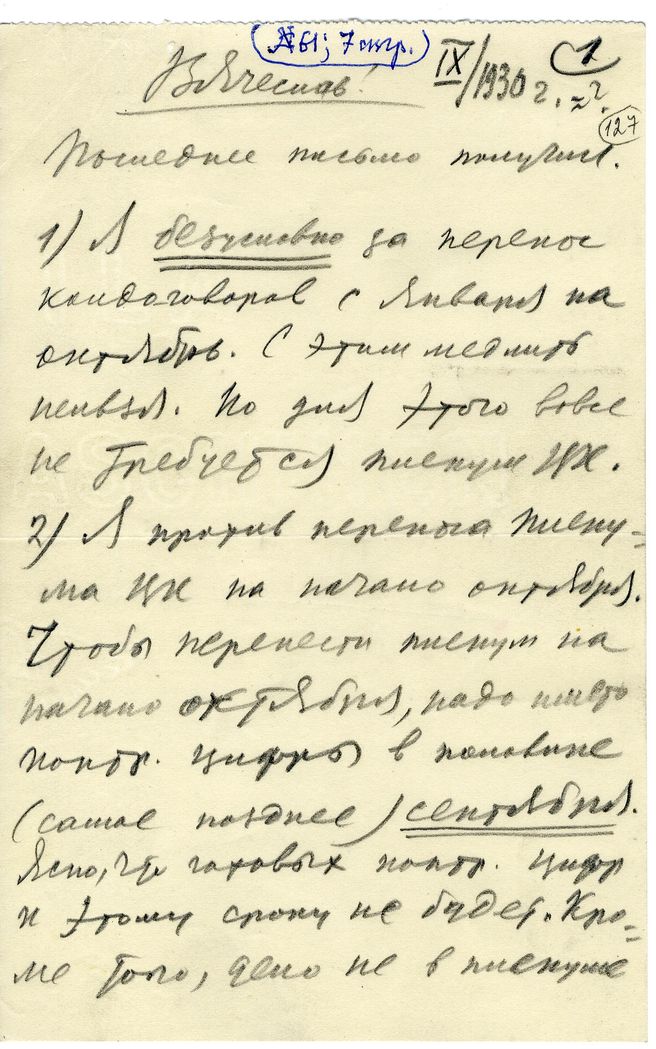 (№ 61; 7 стр.)
Вячеслав!
IX/1930 г.
1
127
Последнее письмо получил.
1) Я безусловно за перенос
колдоговоров с января на
октябрь. С этим медлить
нельзя. Но для этого вовсе
не требуется пленум ЦК.
2) Я против переноса плену-
ма ЦК на начало октября.
Чтобы перенести пленум на
начало октября, надо иметь
контр. цифры в половине
(самое позднее) сентября.
Ясно, что готовых контр. цифр
к этому сроку не будет. Кро-
ме того, дело не в пленуме